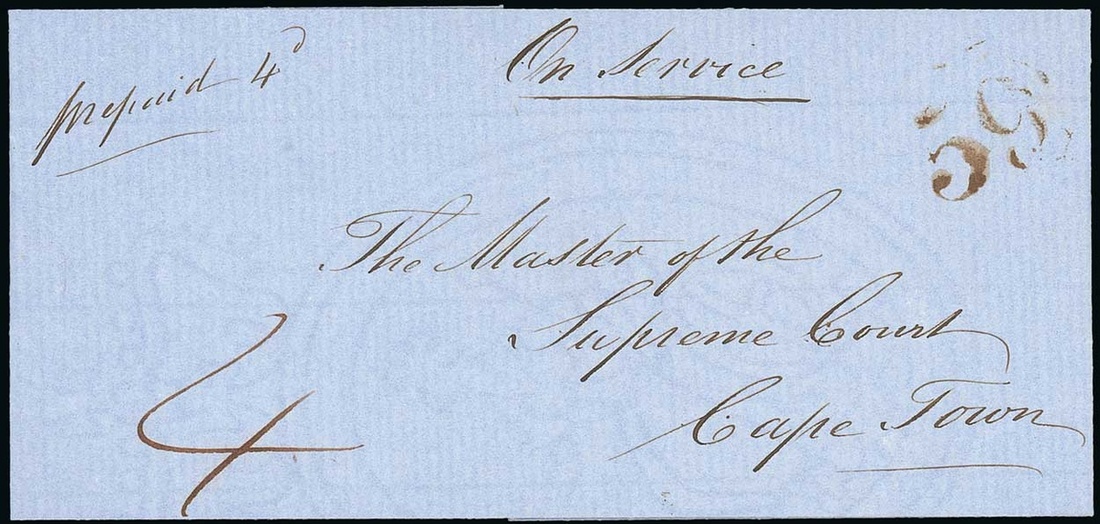 prepaid 4d
On Service
The Master of the
Supreme Court
Cape Town
4